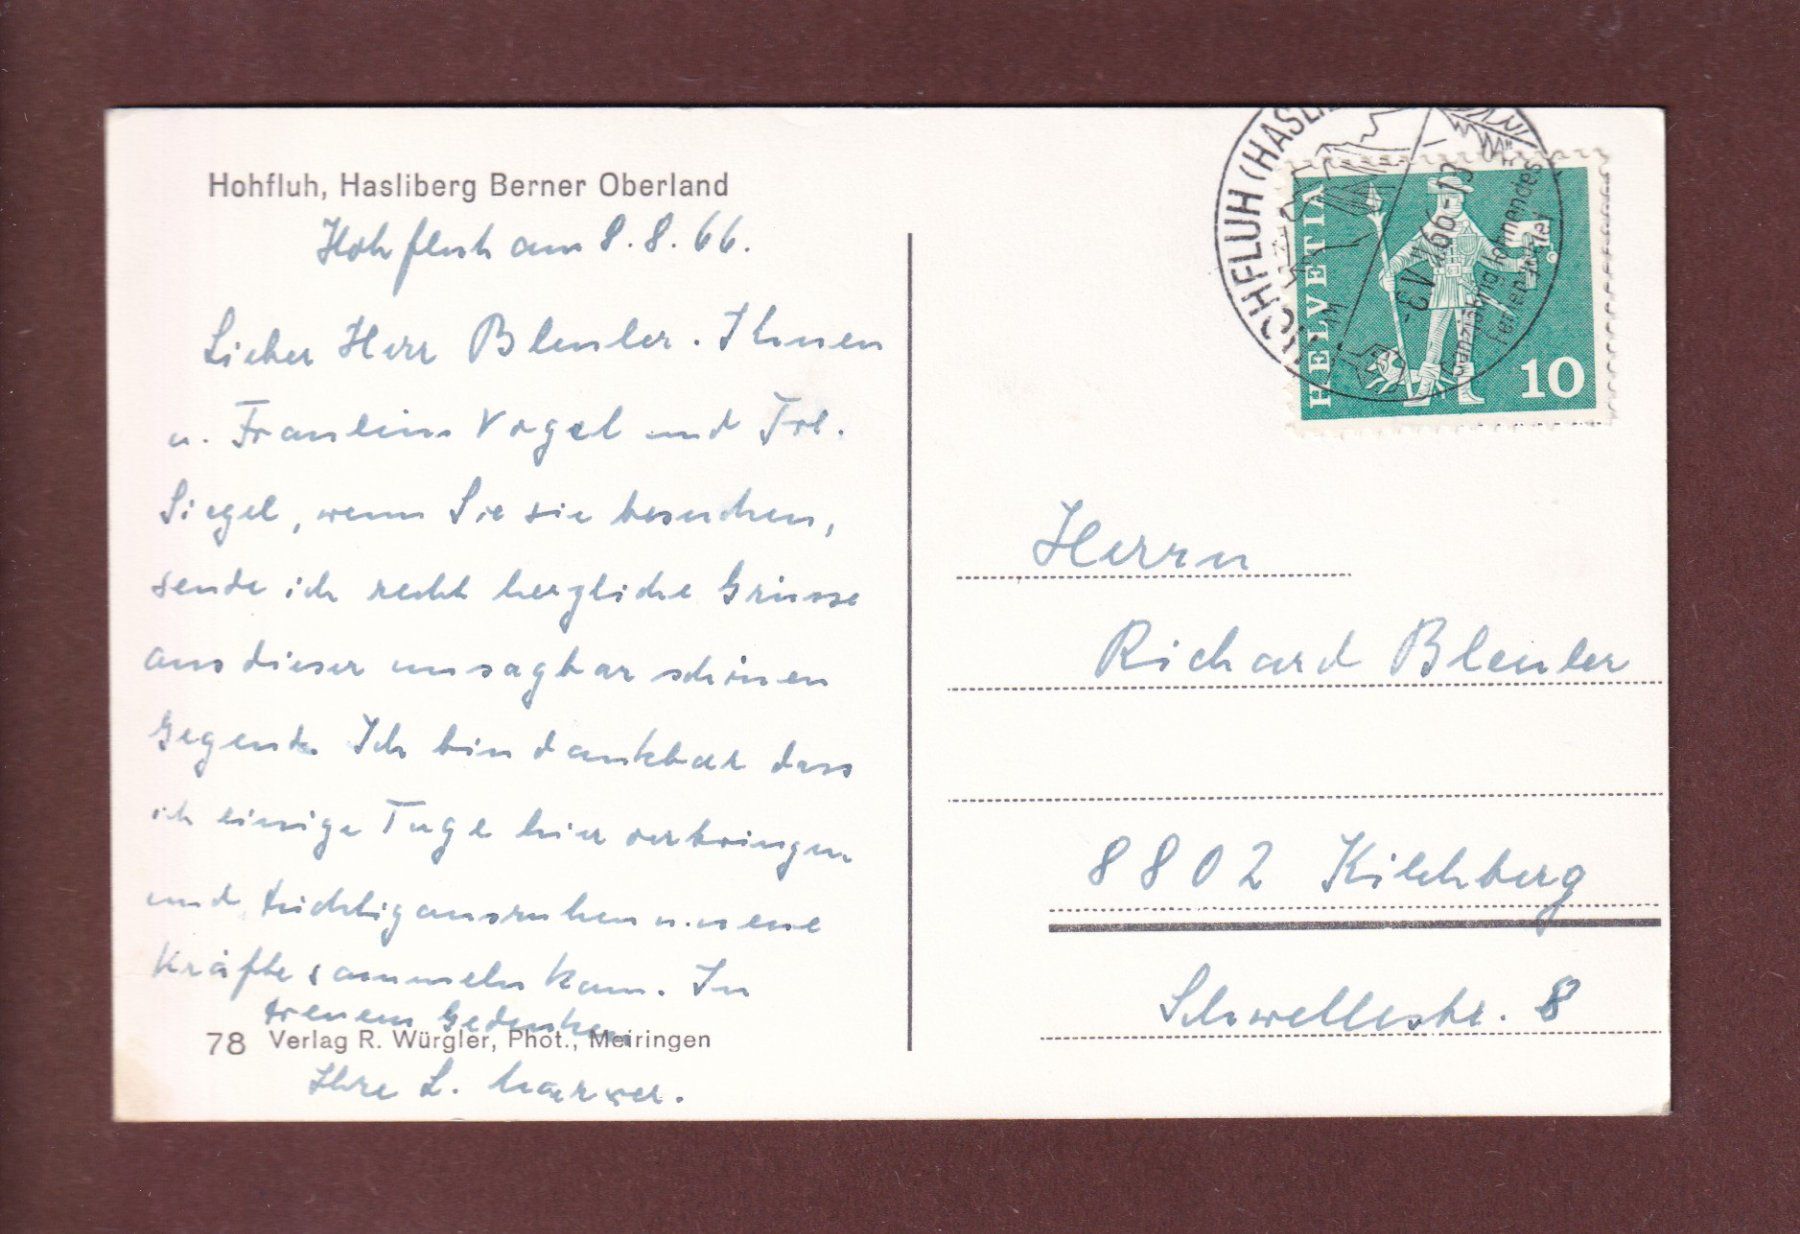 Hohfluh, Hasliberg Berner Oberland
Hohfluh am 8.8.66.
Lieber Herr Bleuler. Ihnen
u. Fräulein Vogel und Frl.
Siegel, wenn Sie sie besuchen,
sende ich recht herzliche Grüsse
aus dieser unsagbar schönen
Gegend. Ich bin dankbar dass
ich einige Tage hier verbringen
und tüchtig ausruhen u. neue
Kräfte sammeln kann. In
treuem Gedenken
78 Verlag R. Würgler, Phot., Meiringen
Ihre L.
HOHFLUH (HASLI
66-19
Ganzjährig lohnendes
Ferienziel
HELVETIA
10
Herrn
Richard Bleuler
8802 Kilchberg
Schwellestr. 8